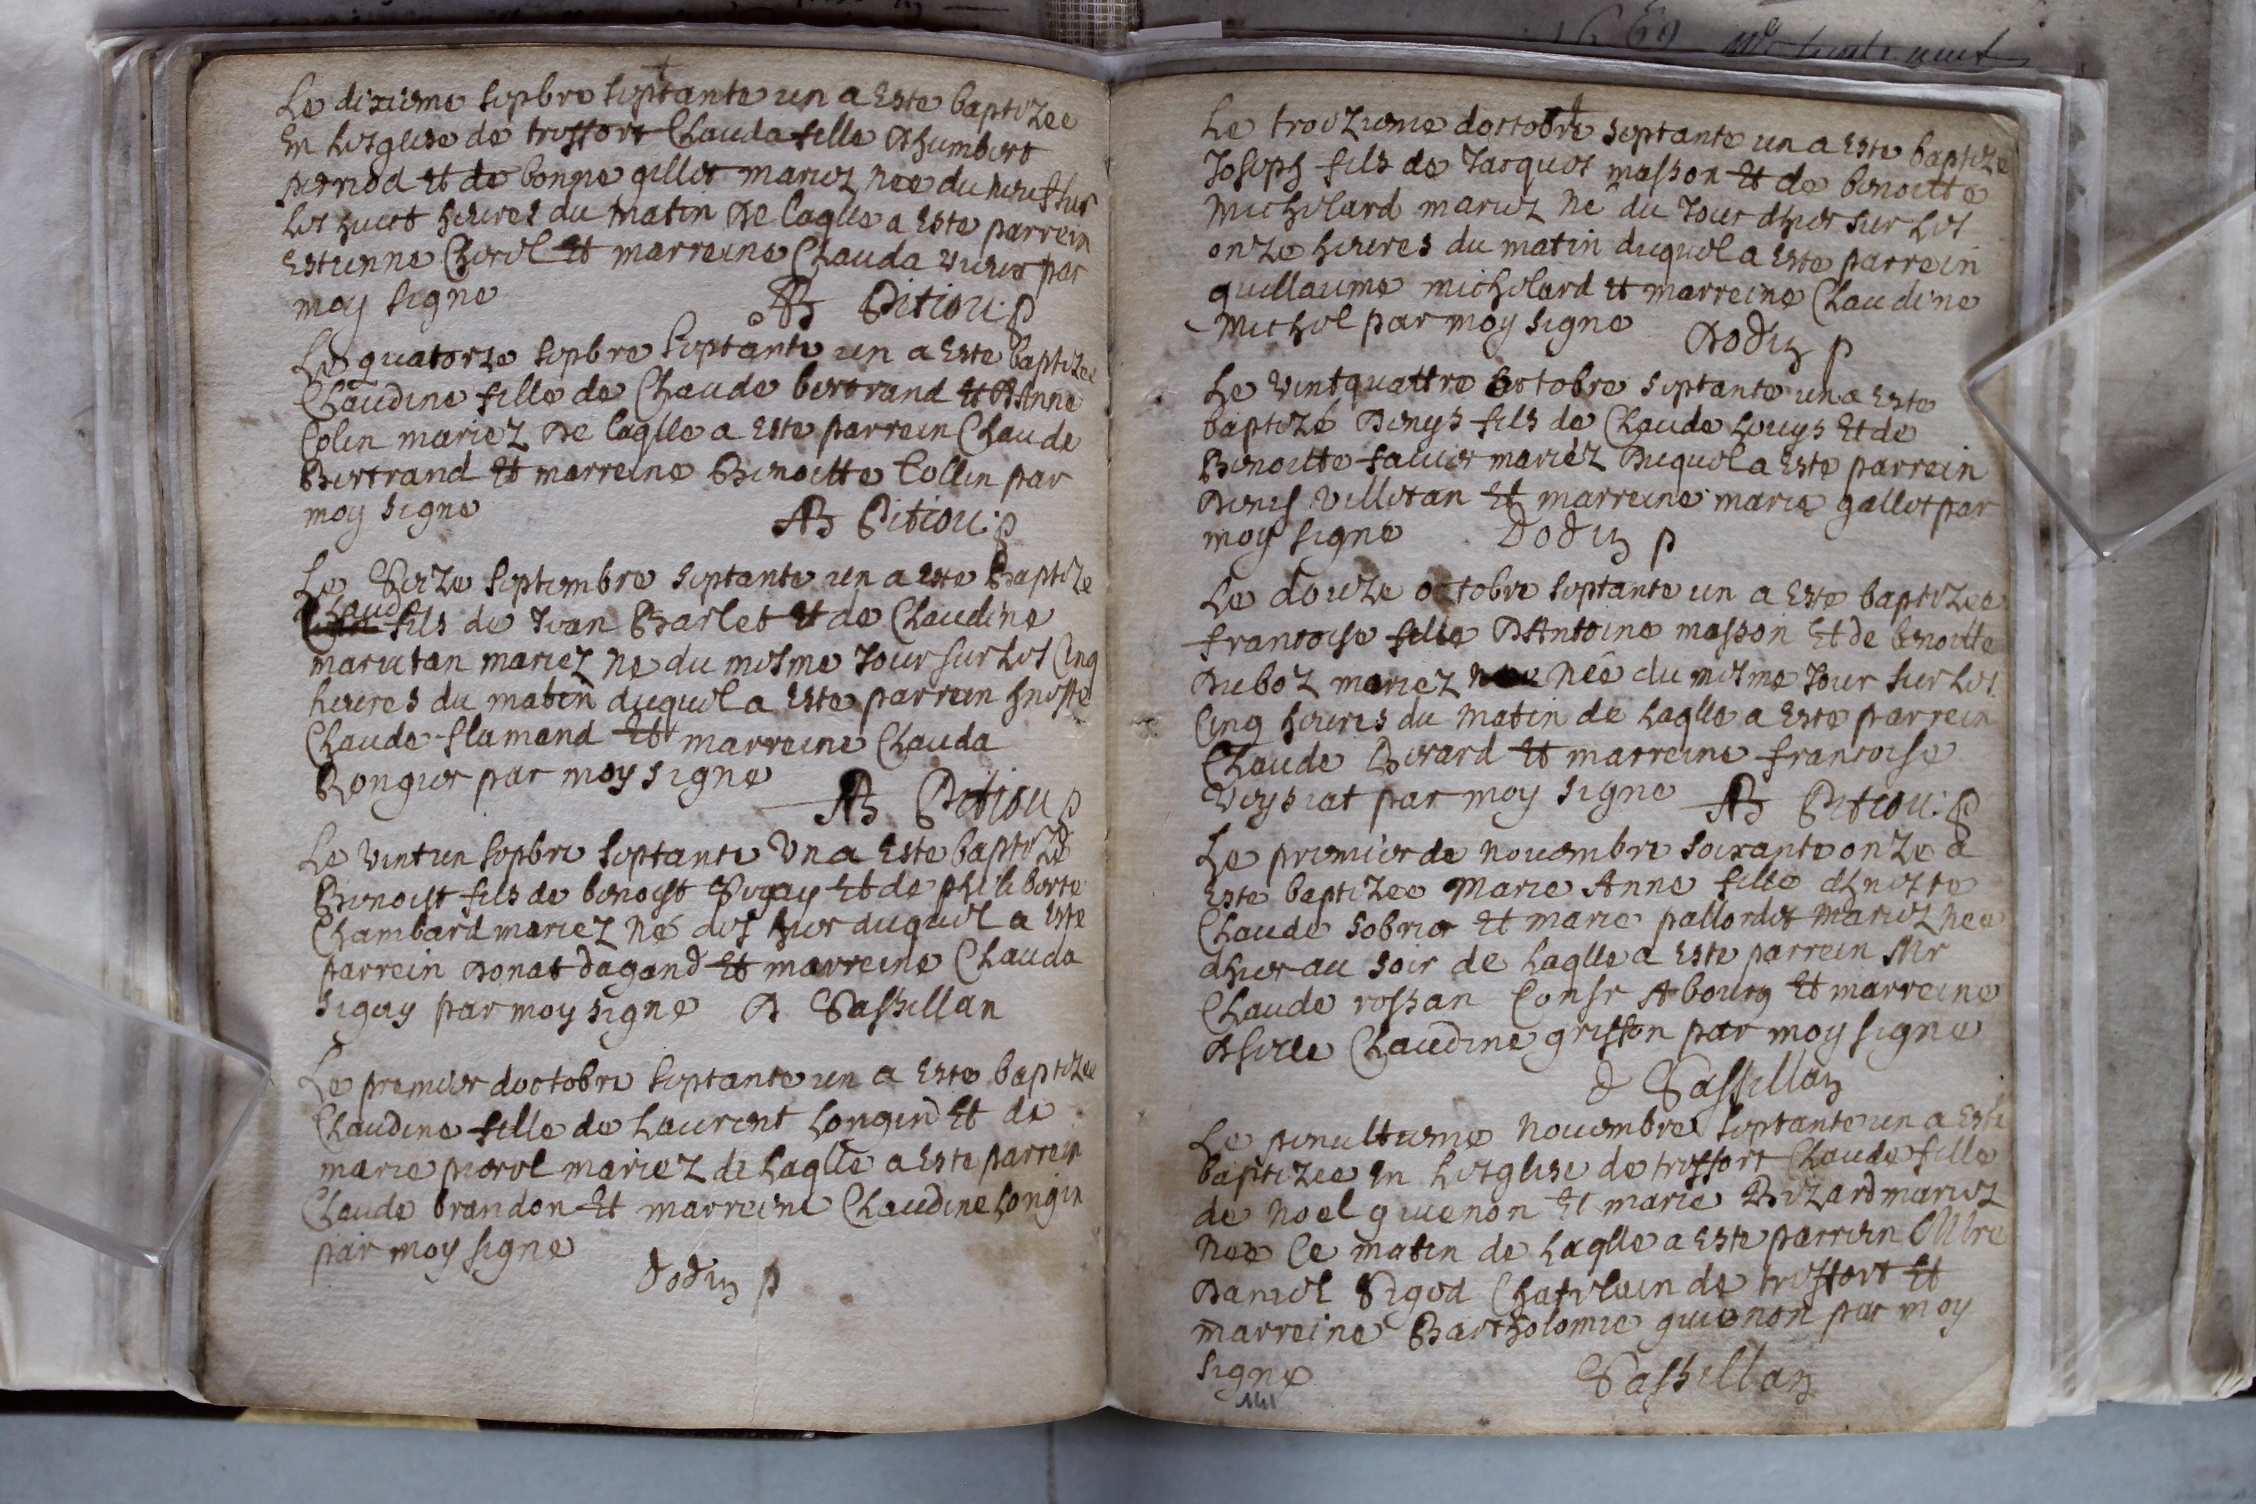 Le dixiesme sepbre septante un a este baptizee
En lesglise de treffort Clauda fille dhumbert
perrida et de bonne gillet mariez nee du neuf sur
les huict heures du matin De laqlle a este parrein
Estienne Chevel et marreine Clauda vieux par
moy signe AB Pitiou: p
Le quatorze sepbre septante un a este baptizee
Claudine fille de Claude bertrand et dAnne
Colin mariez De laqlle a este parrein Claude
Bertrand et marreine Benoitte Collin par
moy signe
AB Pitiou: p
Le Seize septembre septante un a este Baptize
Claude
fils de Jean Barlet et de Claudine
marietan mariez ne du mesme Jour sur les Cinq
heures du matin duquel a este parrein hneste
Claude flamand et marreine Clauda
Rongier par moy signe
AB Pitiou p
Le vintun sepbre septante Un a este baptizé
Benoist fils de benoist Sigay et de philiberte
Chambard mariez né des hier duquel a este
parrein Donat dagand et marreine Clauda
Sigay par moy signe D Passillan
Le premier doctobre septante un a este baptizee
Claudine fille de Laurent Longin et de
marie morel mariez de laqlle a este parrein
Claude brandon et marreine Claudine Longin
par moy signe
Dodin p
Le troizieme doctobre septante un a este baptize
Joseph fils de Jacques masson et de benoitte
Michelard mariez né du Jour dhier sur les
onze heures du matin duquel a este parrein
guillaume michelard et marreine Claudine
Michel par moy signe Dodin p
Le vintquattre octobre septante un a este
baptizé Denys fils de Claude Louys et de
Benoitte favier mariez Duquel a este parrein
Denis villetan et marreine marie gallet par
moy signe Dodin p
Le douze octobre septante un a este baptizee
francoise fille dAntoine masson et de benoitte
Duboz mariez née du mesme Jour sur les
Cinq heures du matin de laqlle a este parrein
Claude Berard et marreine francoise
veysiat par moy signe AB Pitiou: p
Le premier de novembre soixante onze a
este baptizee Marie Anne fille dhneste
Claude sobrier et marie pallordet mariez nee
dhier au soir de laqlle a este parrein Mr
Claude rossan Consr Abourg et marreine
Dsille Claudine griffon par moy signe
D Passillan
Le penultieme novembre septante un a este
baptizee en lesglise de treffort Claude fille
de noel guienon et marie Bizard mariez
nee Ce matin de laqlle a este parrein Mtre
Daniel Pigod Chatelain de treffort et
marreine Bartholomie guienon par moy
signe Passillan